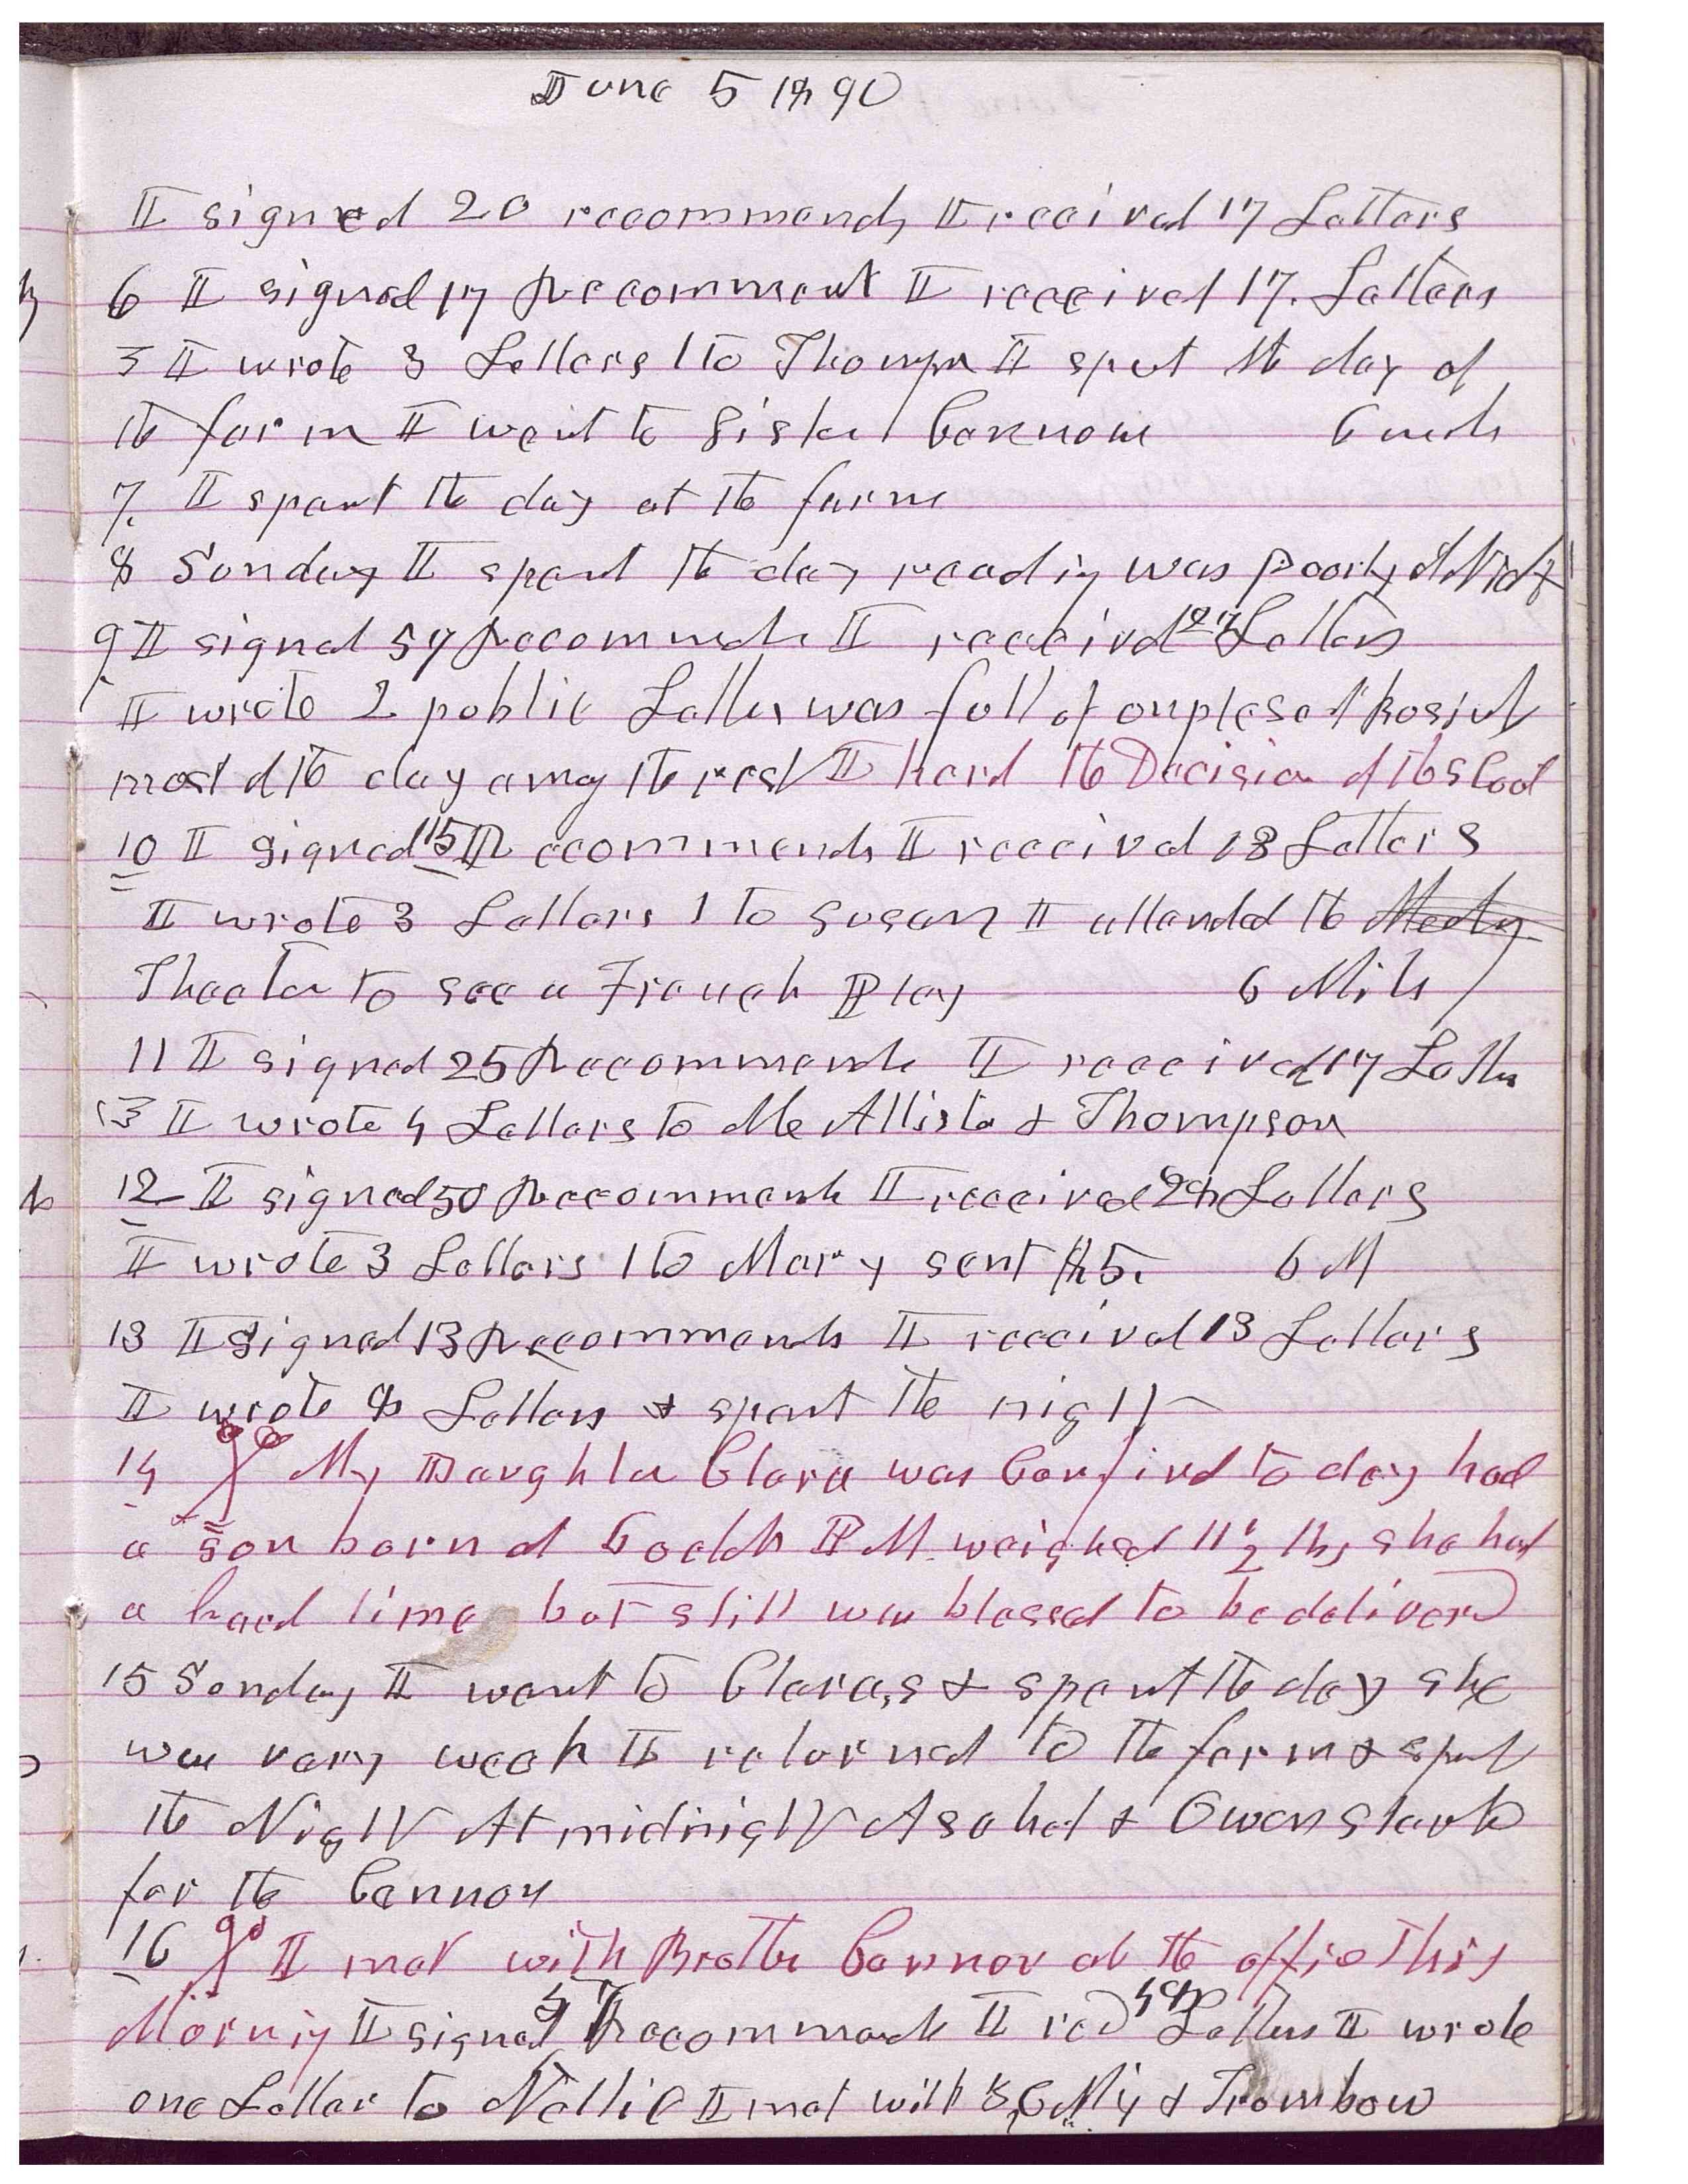 June 5 1890
I signed 20 recommends I received 17 Letters
6 I signed 17 Recommend I received 17. Letters
I wrote 3 Letters 1 to Thompson I spent the day at
the farm I went to Sister Cannons 6 mils
7. I spent the day at the farm
8 Sonday I spent the day reading was poorly at Night
9 I signed 57 Recommends I received 27 Letters
I wrote 2 public Letters was full of onplesat
most of the day among the rest I herd the Decision of the
10 I signed 15 Recommends I received 18 Letters
I wrote 3 Letters 1 to Susan I attended the Meeting
Theater to see a French Play 6 Mils
11 I signed 25 Recommends I received 17 Letters
I wrote 4 Letters to McAllister & Thompson
12 I signed 50 Recommends I received 28 Letters
I wrote 3 Letters 1 to Mary sent $5. 6 M
13 I signed 13 Recommends I received 13 Letters
I wrote 8 Letters & spent the night
14 My Daughter Clara was Confined to day had
a son born at 6 oclok PM. weighed 11 1/2 lbs she had
a hard time but still was blessed to be deliverd
15 Sonday I went to Clara,s & spent the day she
was very weak I returned to the farm & spent
the Night At midnight Asahel & Owen started
for the Cannon
16 I met with Brother Cannon at the office This
Morning I signed Recommends I recd 48 Letters I wrote
one Letter to Nellie I met with & Trombow